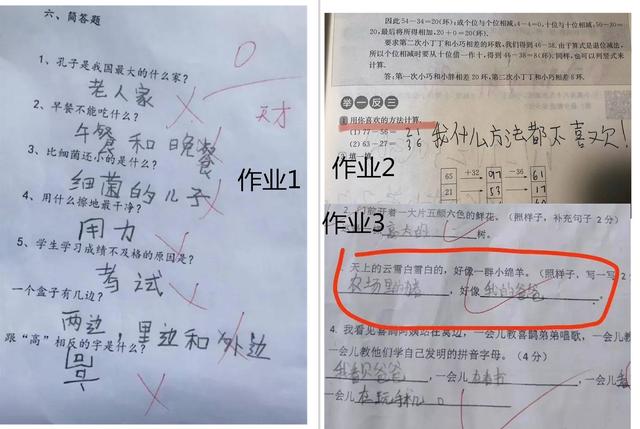 六、简答题
0
1、孔子是我国最大的什么家?
老人家
天才
2、早餐不能吃什么?
午餐和晚餐
3、比细菌还小的是什么?
细菌的儿子
作业1
4、用什么擦地最干净?
用力
5、学生学习成绩不及格的原因是?
考试
一个盒子有几边?
两边,里边和外边
跟“高”相反的字是什么?
因此54-34=20(环);或个位与个位相减,4-4=0,十位与十位相减,50-30=
20,最后将所得相加,20+0=20(环).
要求第二次小丁丁和小巧相差的环数,我们得到46-38.由于算式是退位减法,
所以个位相减时要从十位借一作十,得到46-38=8(环).同样,也可以列竖式来
计算.
答:第一次小巧和小胖相差20环,第二次小丁丁和小巧相差8环.
举一反三
1 用你喜欢的方法计算.
(1) 77-56= 21
(2) 63-27= 36
我什么方法都不喜欢!
填一填
作业2
65 +32 97 -36 61
21 53 17
作业3
着一大片五颜六色的鲜花。(照样子,补充句子2分)
的 树。
天上的云雪白雪白的,好像一群小绵羊。(照样子,写一写2
农场里的猪,好像我的爸爸。
4、我看见喜鹊阿姨站在窝边,一会儿教喜鹊弟弟唱歌,一会儿
一会儿教他们学自己发明的拼音字母。(4分)
我看见爸爸,一会儿 ,一会儿
一会儿在玩手机。